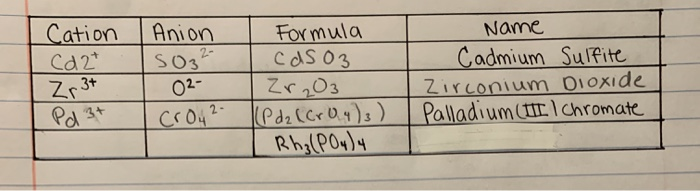 Cation Anion Formula Name
Cd2+ SO3 2- CdSO3 Cadmium Sulfite
Zr3+ O2- Zr2O3 Zirconium Dioxide
Pd3+ CrO4 2- (Pd2(CrO4)3) Palladium(III) chromate
Rh3(PO4)4